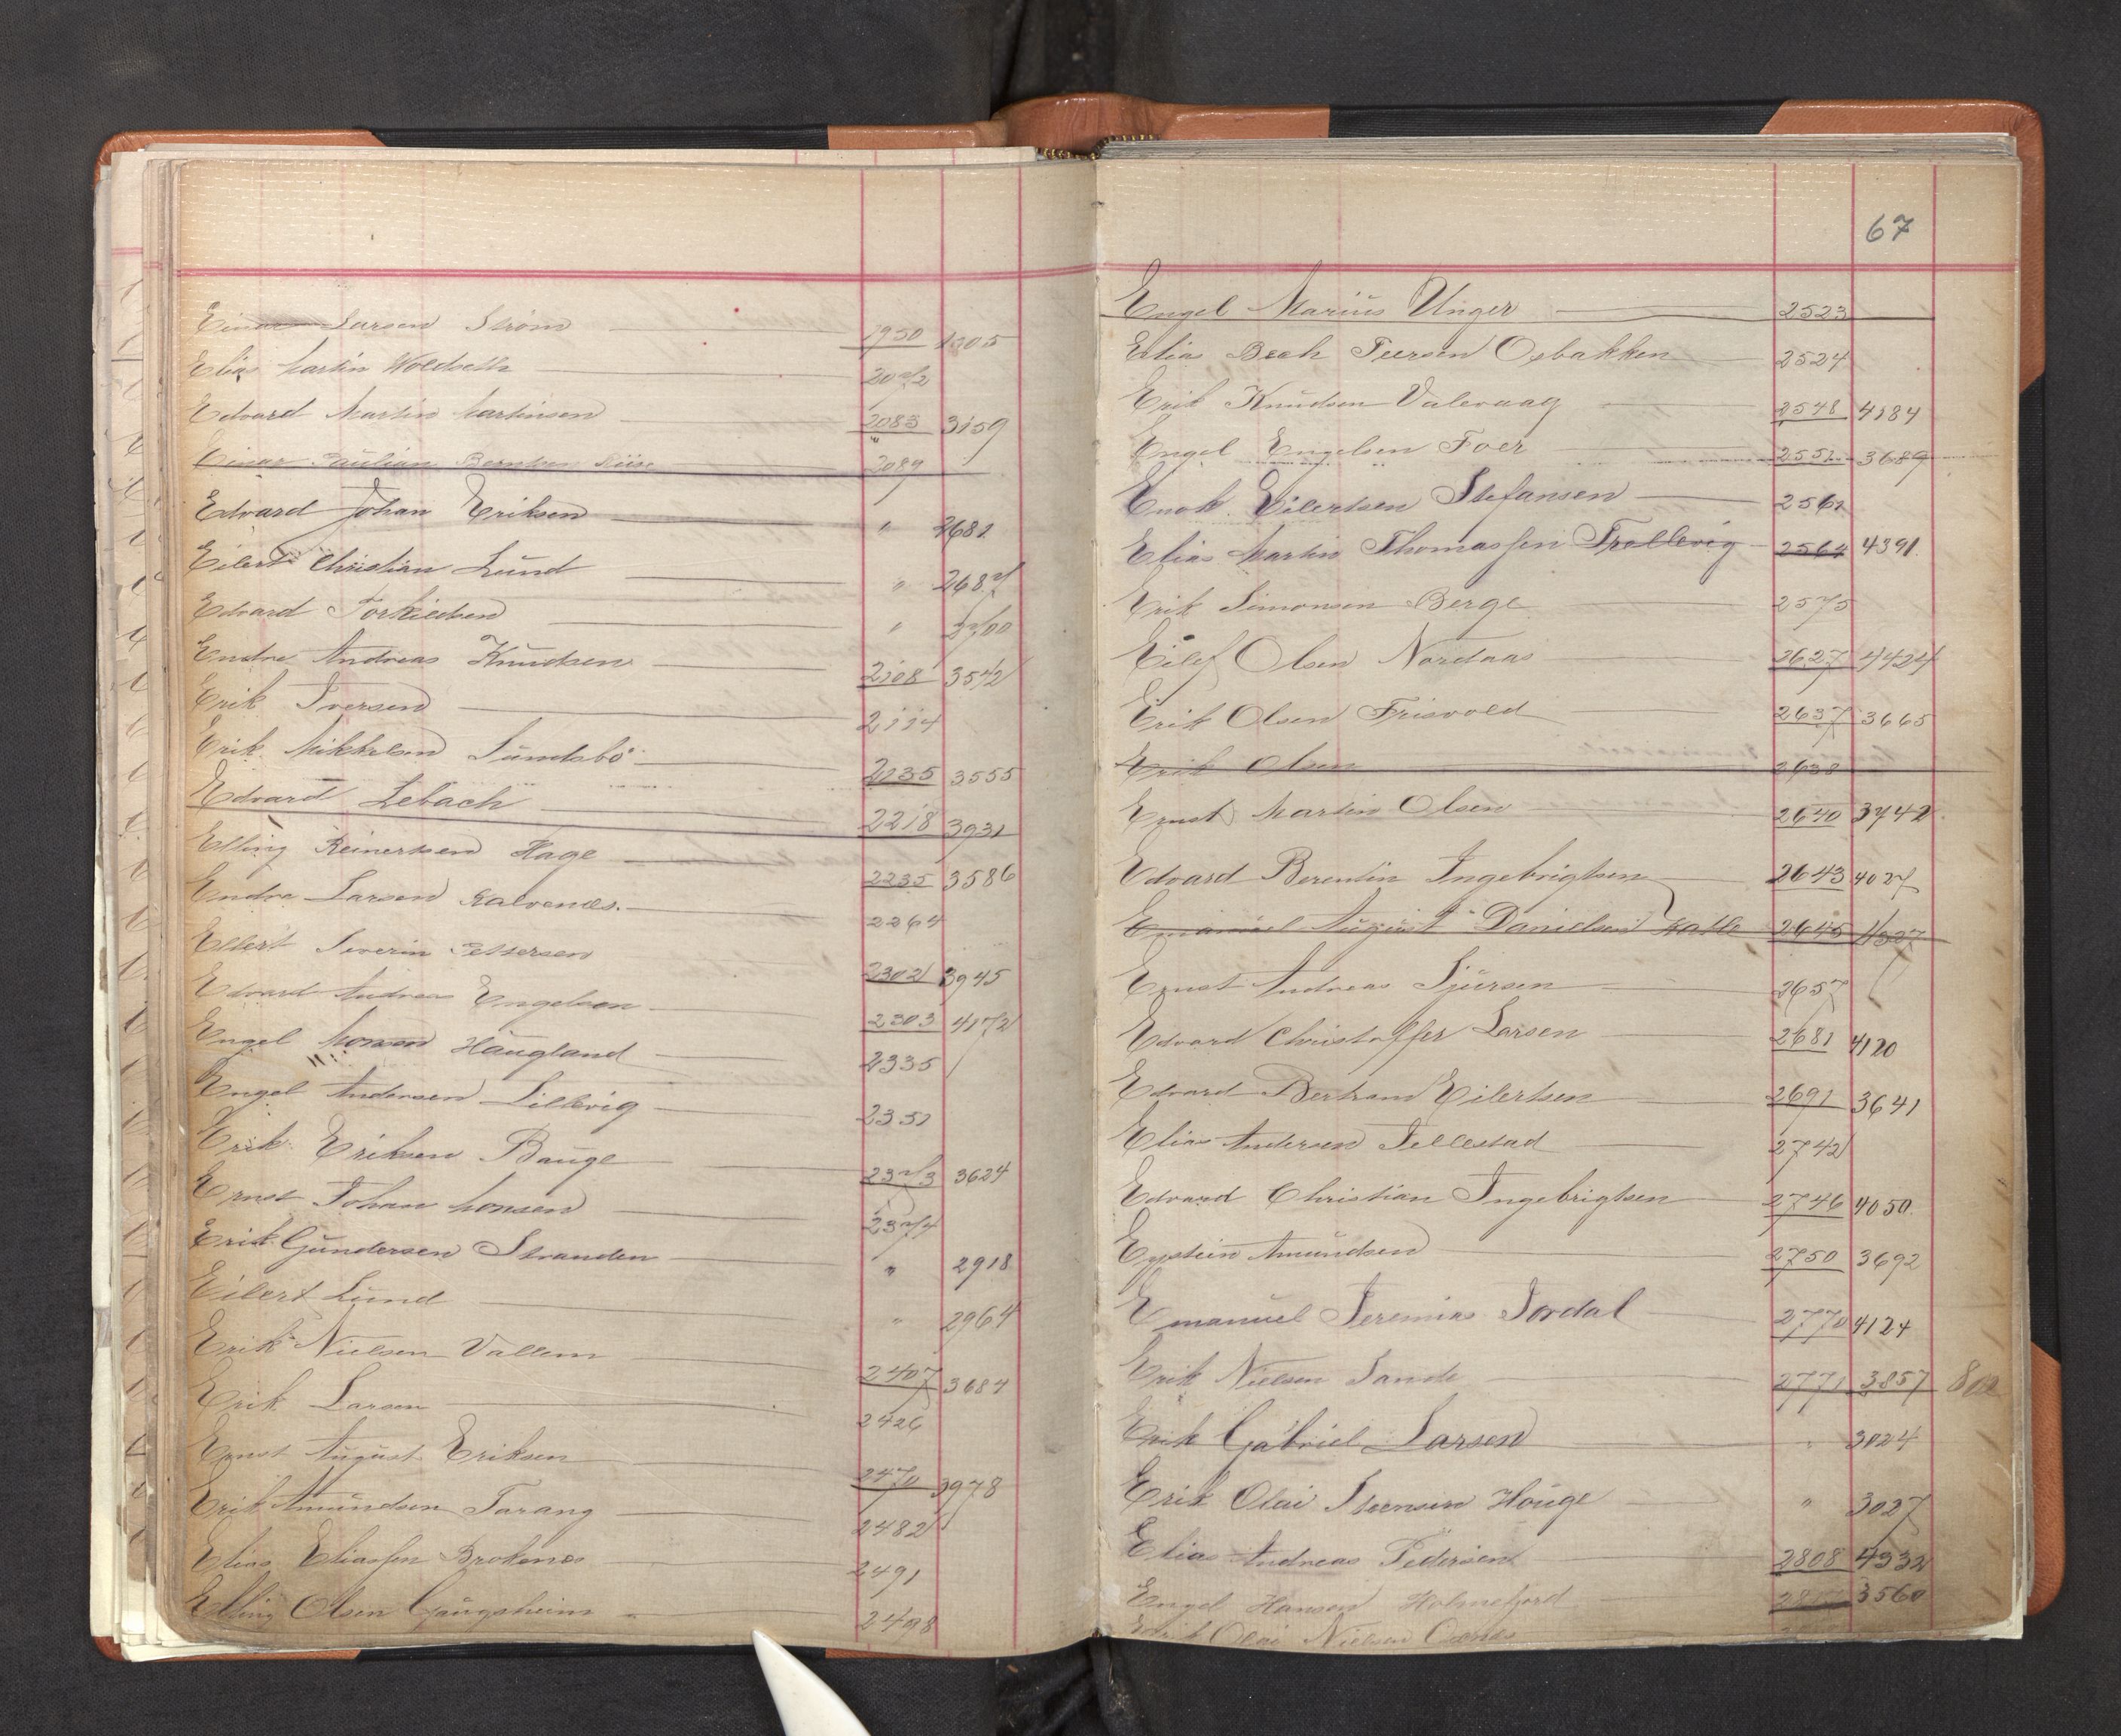 Einar Larsen Strøm 1950 1305
Elias Martin Woldseth 2072
Edvard Martin Martinsen 2083 3159
Einar Paulian Berntsen 2089
Edvard Johan Eriksen " 2681
Eilert Christian Lund " 2687
Edvard Torkildsen " 2700
Endre Andreas Knudsen 2108 3542
Erik Iversen 2114
Erik Mikkelsen Sundsbö 2135 3555
Edvard Lebach 2218 3931
Elling Reinertsen Hage 2235 3586
Endre Larsen Kalvenes. 2264
Ellert Severin Pettersen 2302 3945
Edvard Andreas Engelsen 2303 4172
Engel Monsen Haugland 2335
Engel Andersen Lillevig 2351
Erik Eriksen Bauge 2373 3624
Ernst Johan Monsen 2374
Erik Gundersen Stranden " 2918
Eilert Lund " 2964
Erik Nielsen Vallem 2407 3684
Erik Larsen 2426
Ernst August Eriksen 2470 3978
Erik Amundsen Tarang 2482
Elias Eliassen Brokenes 2491
Elling Olsen Gaugsheim 2498
67
Engel Marius Unger 2523
Elias Bech Peersen Oxbakken 2524
Erik Knudsen Valevaag 2548 4184
Engel Engelsen Foer 2551 3689
Enok Eilertsen Stefansen 2561
Elias Martin Thomassen Trollevig 2564 4391
Erik Simonsen Berge 2575
Eilef Olsen Nordaas 2627 4424
Erik Olsen Frisvold 2637 3665
Erik Olsen 2638
Ernst Martin Olsen 2640 3742
Edvard Berentin Ingebrigtsen 2643 4027
Emanuel August Danielsen 2645 4327
Ernst Andreas Sjursen 2657
Edvard Christoffer Larsen 2681 4120
Edvard Bertram Eilertsen 2691 3641
Elias Andersen Tellestad 2742
Edvard Christian Ingebrigtsen 2746 4050
Eystein Amundsen 2750 3692
Emanuel Jeremias Jordal 2770 4124
Erik Nielsen Sande 2771 3857
Erik Gabriel Larsen " 3024
Erik Olai Steensen Houge " 3027
Elias Andreas Pedersen 2808 4332
Engel Hansen Holmefjord 3560
Erik Olai Nielsen